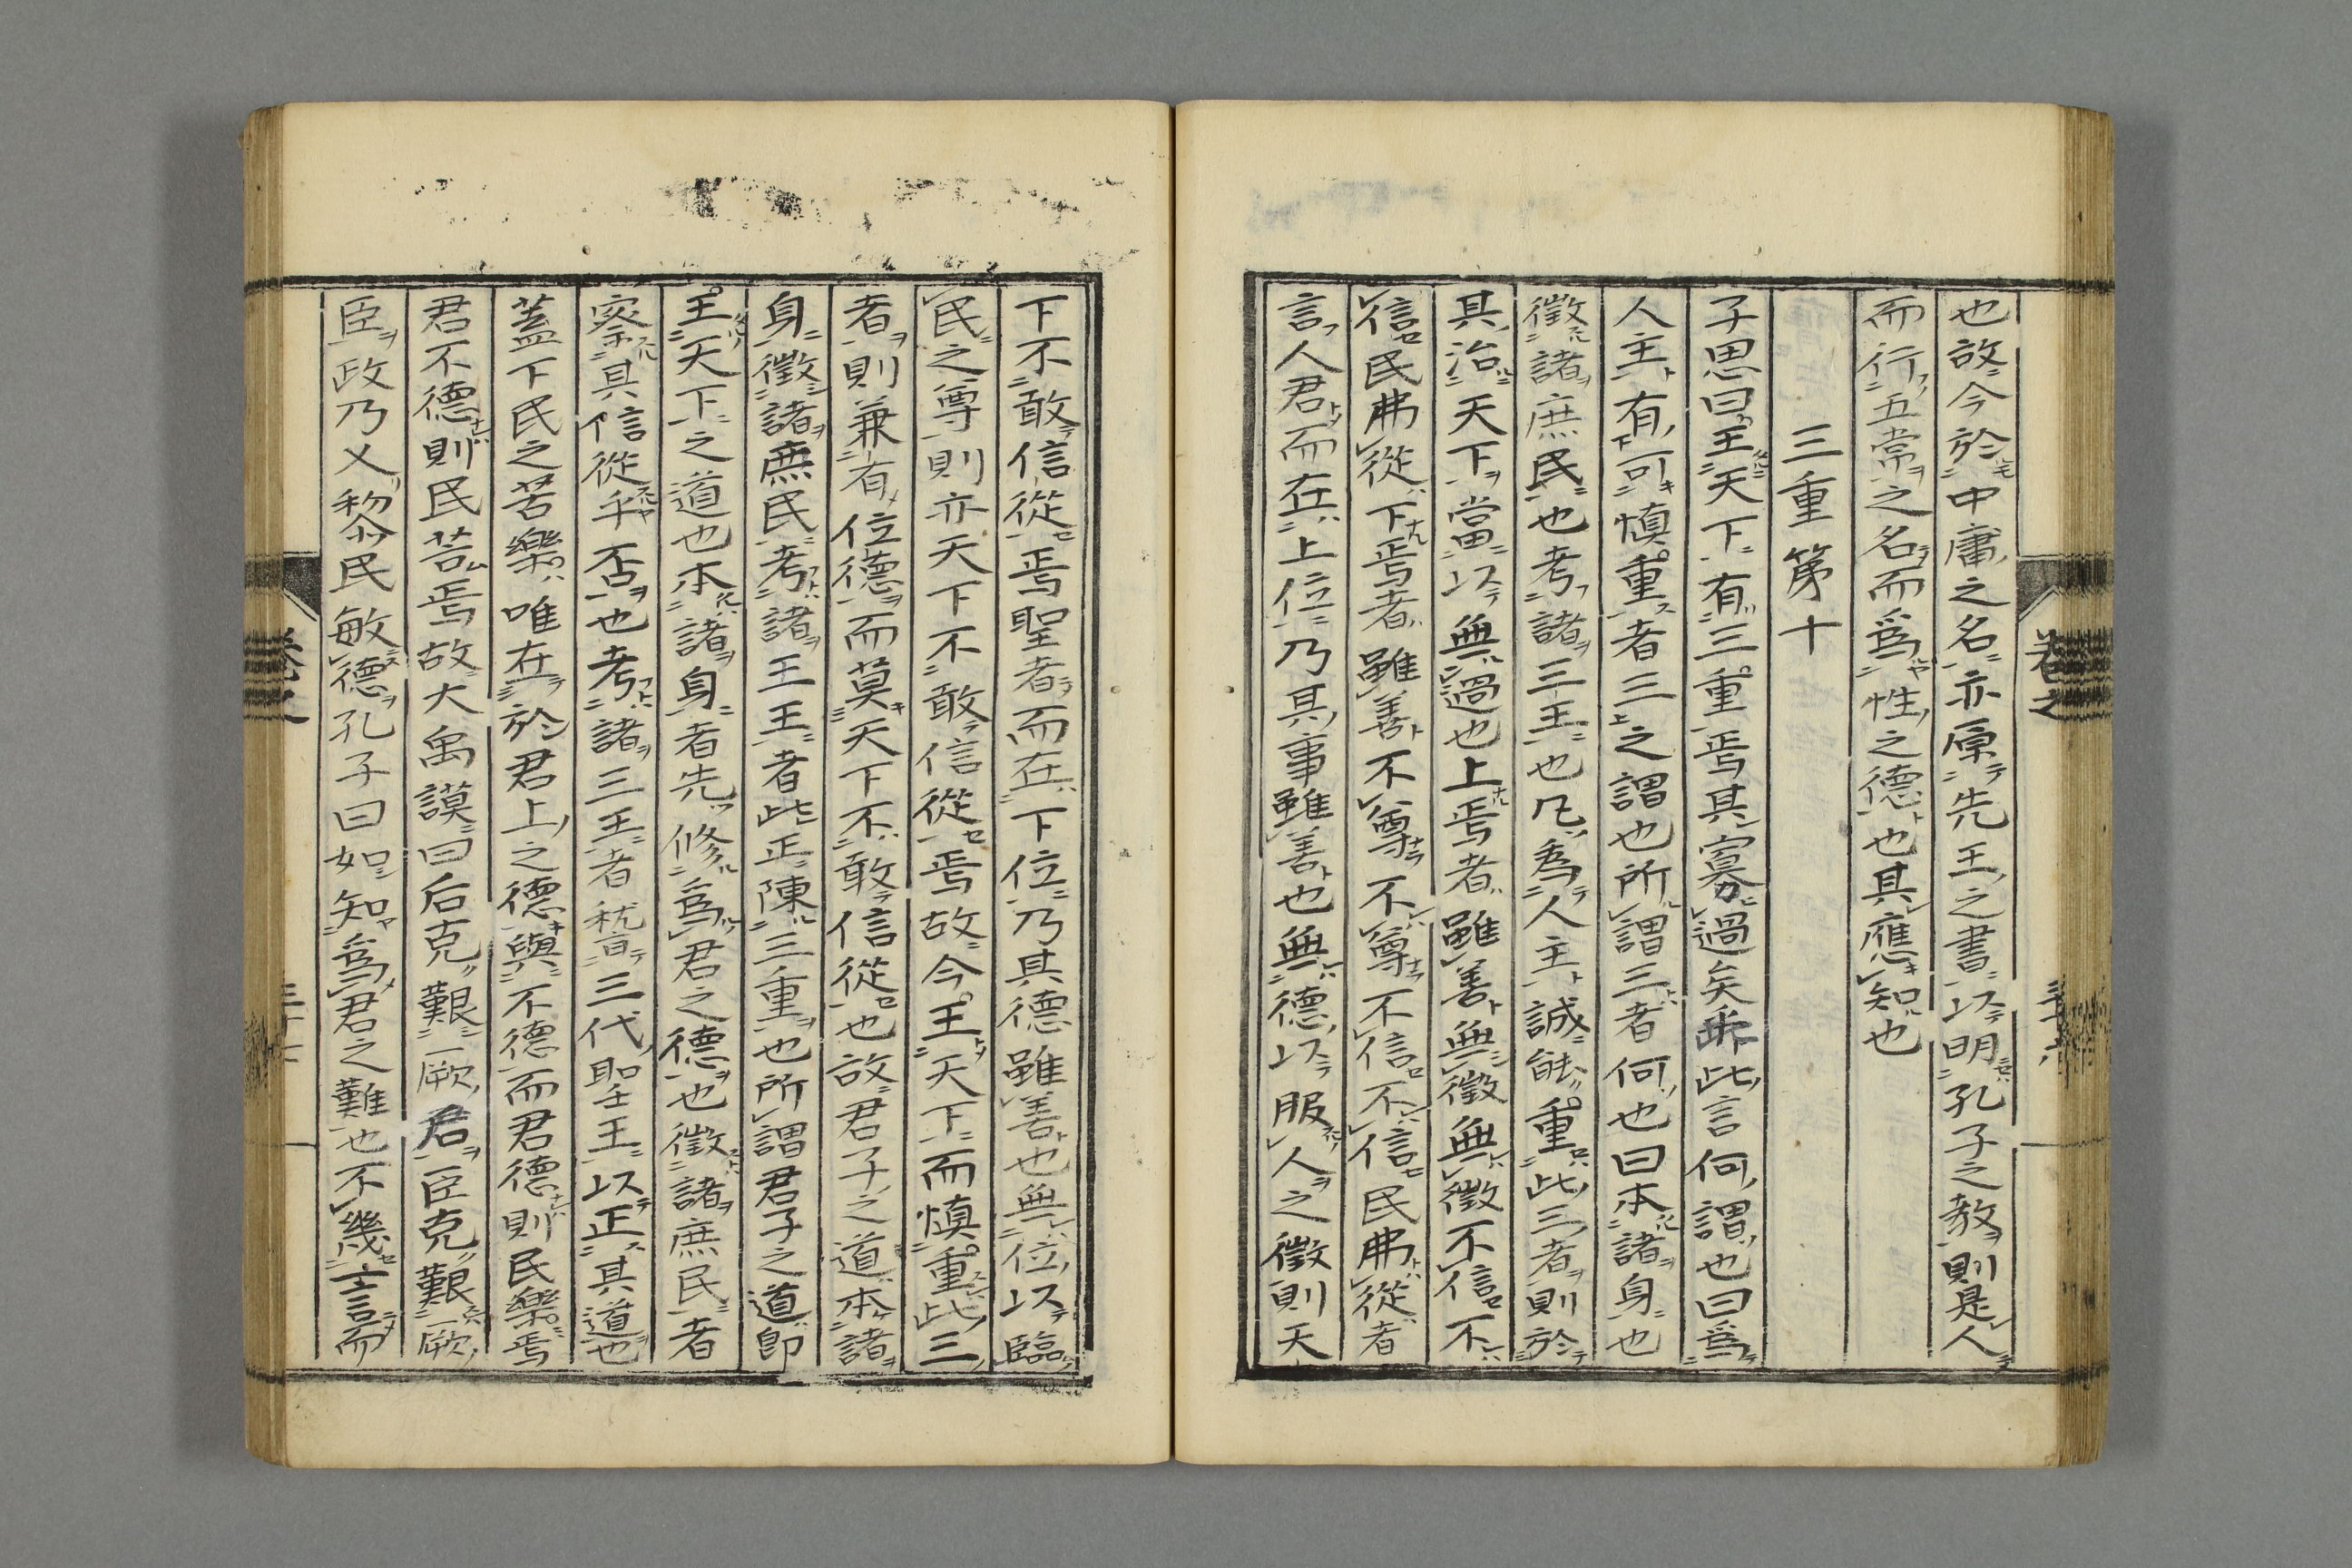 也故今於中庸之名亦原先王之書以明孔子之教則是人
而行五常之名而爲性之德也其應知也
三重第十
子思曰王天下有三重焉其寡過矣乎此言何謂也曰爲
人主有可愼重者三之謂也所謂三者何也曰本諸身也
徵諸庶民也考諸三王也凡爲人主誠能重此三者則於
其治天下當以無過也上焉者雖善無徵無徵不信不
信民弗從下焉者雖善不尊不尊不信不信民弗從者
言人君而在上位乃其事雖善也無德以服人之徵則天
下不敢信從焉聖者而在下位乃其德雖善也無位以臨
民之尊則亦天下不敢信從焉故今王天下而愼重此三
者則兼有位德而莫天下不敢信從也故君子之道本諸
身徵諸庶民考諸王王者此正陳三重也所謂君子之道卽
王天下之道也本諸身者先修爲君之德也徵諸庶民者
察其信從乎否也考諸三王者稽三代聖王以正其道也
蓋下民之苦樂唯在於君上之德與不德而君德則民樂焉
君不德則民苦焉故大禹謨曰后克艱厥君臣克艱厥
臣政乃乂黎民敏德孔子曰如知爲君之難也不幾言而
卷之
三十六
卷之
三十七